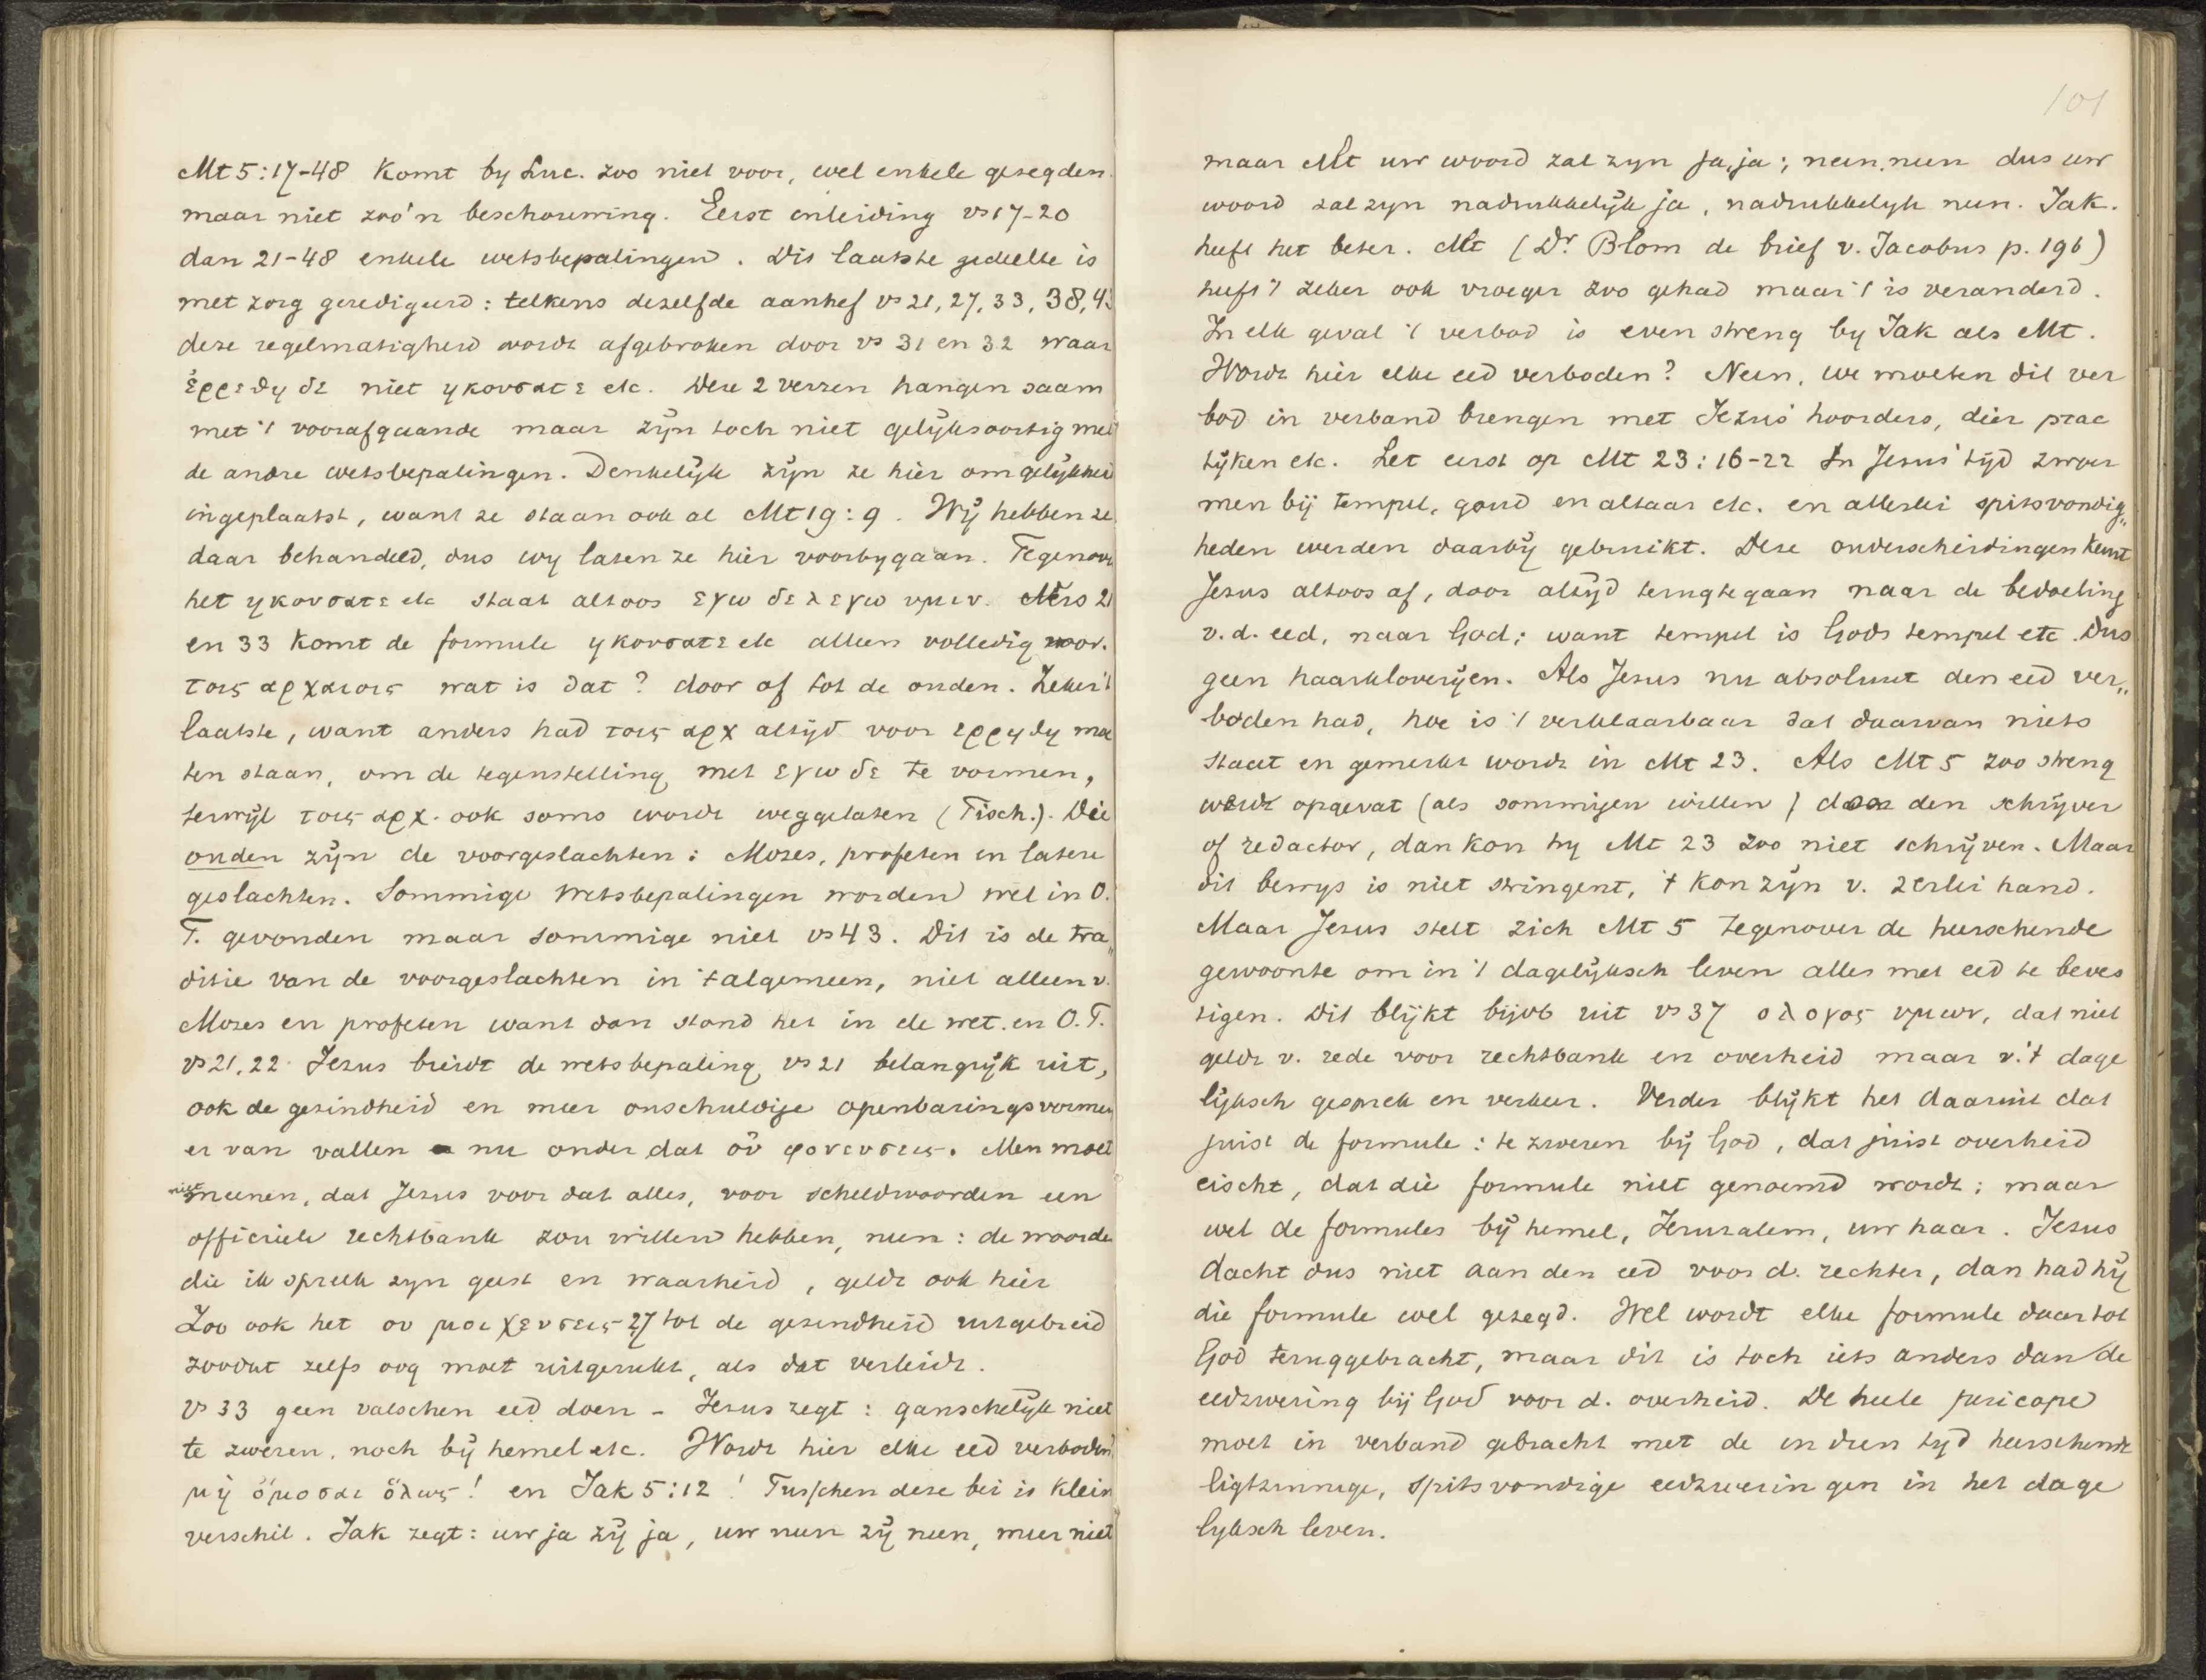 Mt 5:17-48 komt by Luc. zoo niet voor, wel enkele gezegden
maar niet zoo'n beschouwing. Eerst inleiding vs 17-20
dan 21-48 enkele wetsbepalingen. Dit laatste gedeelte is
met zorg geredigeerd: telkens dezelfde aanhef vs 21, 27, 33, 38, 43
deze regelmatigheid wordt afgebroken door vs 31 en 32 waar
ἐρρεθη δε niet ηκουσατε etc. Deze 2 verzen hangen saam
met 't voorafgaande maar zijn toch niet gelijksoortig met
de andre wetsbepalingen. Denkelijk zijn ze hier om gelijkheid
ingeplaatst, want ze staan ook al Mt 19:9. Wij hebben ze
daar behandeld, dus wy laten ze hier voorbygaan. Tegenover
het ηκουσατε etc staat altoos εγω δε λεγω υμιν. Vers 21
en 33 komt de formule ηκουσατε etc alleen volledig voor.
τοις αρχαιοις wat is dat? door of tot de ouden. Zeker 't
laatste, want anders had τοις αρχ altijd voor ερρηθη moe
ten staan, om de tegenstelling met εγω δε te vormen,
terwijl τοις αρχ. ook soms wordt weggelaten (Tisch.). Die
ouden zijn de voorgeslachten: Mozes, profeten en latere
geslachten. Sommige wetsbepalingen worden wel in O.
T. gevonden maar sommige niet vs 43. Dit is de tra„
ditie van de voorgeslachten in 't algemeen, niet alleen v.
Mozes en profeten want dan stond het in de wet en O.T.
vs 21.22 Jezus breidt de wetsbepaling vs 21 belangrijk uit,
ook de gezindheid en meer onschuldige openbaringsvormen
er van vallen nu onder dat οὐ φονευσεις. Men moet
niet meenen, dat Jezus voor dat alles, voor scheldwoorden een
officieele rechtbank zou willen hebben, neen: de woorden
die ik spreek zyn geest en waarheid, geldt ook hier
Zoo ook het ου μοιχευσεις 27 tot de gezindheid uitgebreid
zoodat zelfs oog moet uitgerukt, als dat verleidt.
vs 33 geen valschen eed doen - Jezus zegt: ganschelijk niet
te zweren, noch bij hemel etc. Wordt hier elke eed verboden
μὴ ὀμοσαι ὅλως! en Jak 5:12! Tusschen deze bei is klein
verschil. Jak zegt: uw ja zij ja, uw neen zij neen, meer niet
101
maar Mt uw woord zal zyn ja, ja; neen, neen dus uw
woord zal zyn nadrukkelijk ja, nadrukkelyk neen. Jak.
heeft het beter. Mt (Dr. Blom de brief v. Jacobus p. 196)
heeft 't zeker ook vroeger zoo gehad maar 't is veranderd.
In elk geval 't verbod is even streng by Jak als Mt.
Wordt hier elke eed verboden? Neen, we moeten dit ver
bod in verband brengen met Jezus' hoorders, dier prac
tijken etc. Let eerst op Mt 23:16-22 In Jezus' tijd zwoer
men bij tempel, goud en altaar etc. en allerlei spitsvondig„
heden werden daarbij gebruikt. Deze onderscheidingen keurt
Jezus altoos af, door altijd terug te gaan naar de bedoeling
v. d. eed, naar God; want tempel is Gods tempel etc. Dus
geen haarkloverijen. Als Jezus nu absoluut den eed ver„
boden had, hoe is 't verklaarbaar dat daarvan niets
staat en gemerkt wordt in Mt 23. Als Mt 5 zoo streng
werdt opgevat (als sommigen willen) door den schrijver
of redactor, dan kon hy Mt 23 zoo niet schrijven. Maar
dit bewys is niet stringent, 't kon zijn v. 2erlei hand.
Maar Jezus stelt zich Mt 5 tegenover de heerschende
gewoonte om in 't dagelijksch leven alles met eed te beves
tigen. Dit blijkt bijvb uit vs 37 ο λογος υμων, dat niet
geldt v. rede voor rechtbank en overheid maar v. 't dage
lijksch gesprek en verkeer. Verder blijkt het daaruit dat
juist de formule: te zweren bij God, dat juist overheid
eischt, dat die formule niet genoemd wordt; maar
wel de formules bij hemel, Jeruzalem, uw haar. Jezus
dacht dus niet aan den eed voor d. rechter, dan had hij
die formule wel gezegd. Wel wordt elke formule daar tot
God teruggebracht, maar dit is toch iets anders dan de
eedzwering bij God voor d. overheid. De heele pericope
moet in verband gebracht met de in dien tyd heerschende
ligtzinnige, spitsvondige eedzweringen in het dage
lyksch leven.